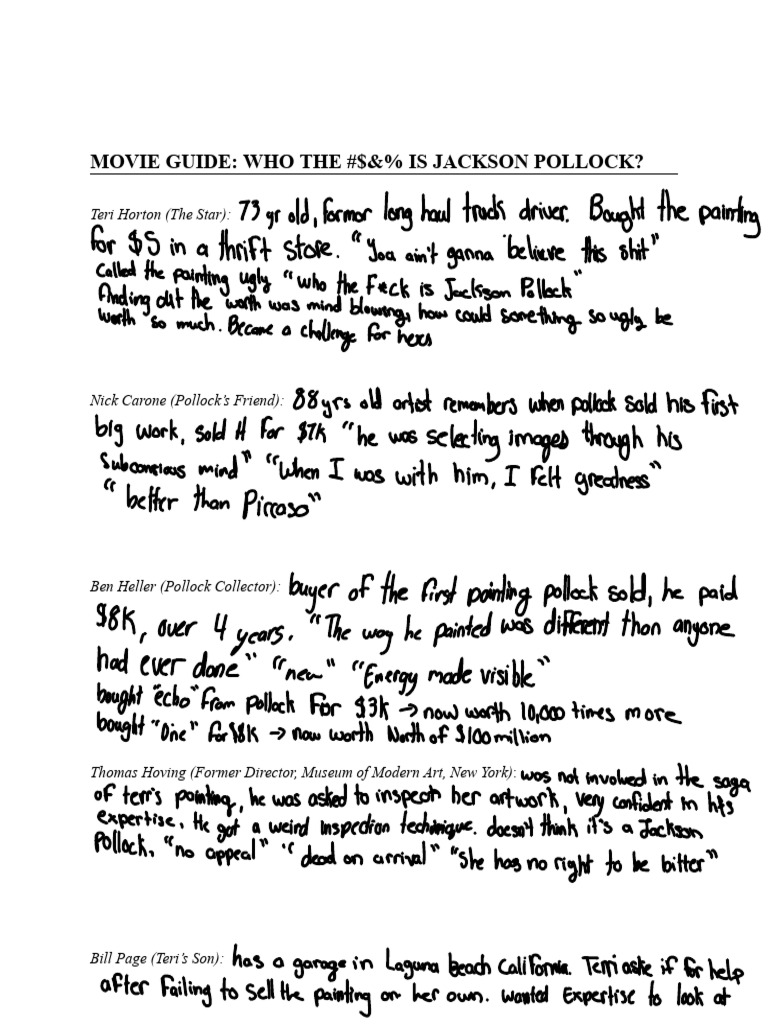 MOVIE GUIDE: WHO THE #$&% IS JACKSON POLLOCK?
Teri Horton (The Star): 73 yr old, former long haul truck driver. Bought the painting
for $5 in a thrift store. "You ain't ganna believe this shit"
Called the painting ugly "who the F*ck is Jackson Pollock"
finding out the worth was mind blowing, how could something so ugly be
worth so much. Became a challenge for hers
Nick Carone (Pollock's Friend): 88yrs old artist remembers when pollock sold his first
big work, sold it for $7k "he was selecting images through his
Subconscious mind" "When I was with him, I felt greatness"
"better than Piccaso"
Ben Heller (Pollock Collector): buyer of the first painting pollock sold, he paid
$8K, over 4 years. "The way he painted was different than anyone
had ever done" "new" "Energy made visible"
bought "echo" from pollock for $3k → now worth 10,000 times more
bought "One" for $8K → now worth North of $100 million
Thomas Hoving (Former Director, Museum of Modern Art, New York): was not involved in the saga
of terri's painting, he was asked to inspect her artwork, very confident in his
expertise. He got a weird inspection technique. doesn't think it's a Jackson
Pollock. "no appeal" "dead on arrival" "She has no right to be bitter"
Bill Page (Teri's Son): has a garage in Laguna beach California. Terri aske if for help
after failing to sell the painting on her own. wanted Expertise to look at